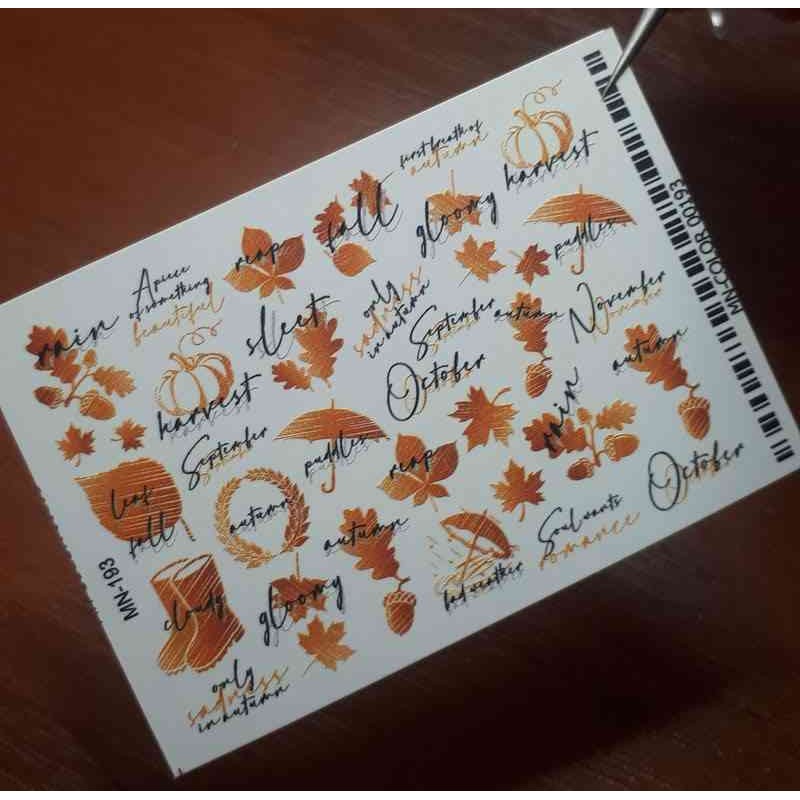 first breath of
autumn
harvest
fall
gloomy
reap
puddles
A piece
of something
beautiful
only
sadness
in autumn
sleet
September
autumn
November
rain
harvest
October
autumn
September
puddles
reap
rain
leaf
fall
autumn
autumn
Soul wants
romance
October
bad weather
cloudy
gloomy
only
sadness
in autumn
MN-193
MN-COLOR-00193